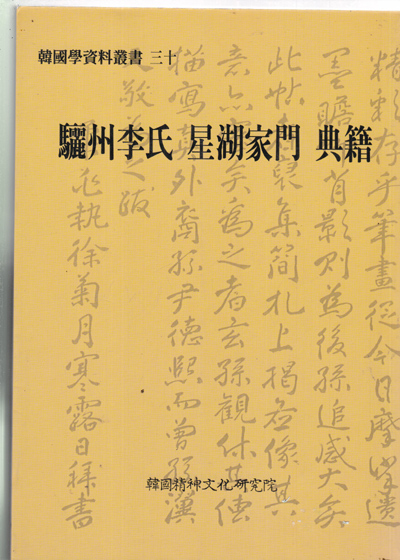 韓國學資料叢書 三十
驪州李氏 星湖家門 典籍
精彩存乎筆畫從今日摩挲遺
墨瞻背影則為後孫追感大矣
此帖裒集簡札上揭像其
意亦矣為之者玄孫觀休其傳
描寫外裔孫尹德熙而曾孫漢
敬之跋
執徐菊月寒露日拜書
韓國精神文化研究院